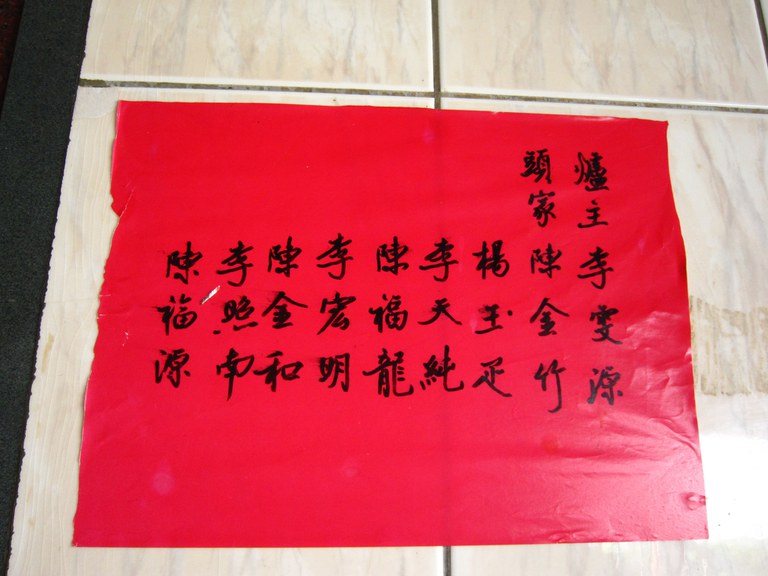 爐主李雯源
頭家陳金竹
楊玉疋
李天純
陳福龍
李宏明
陳金和
李照南
陳福源